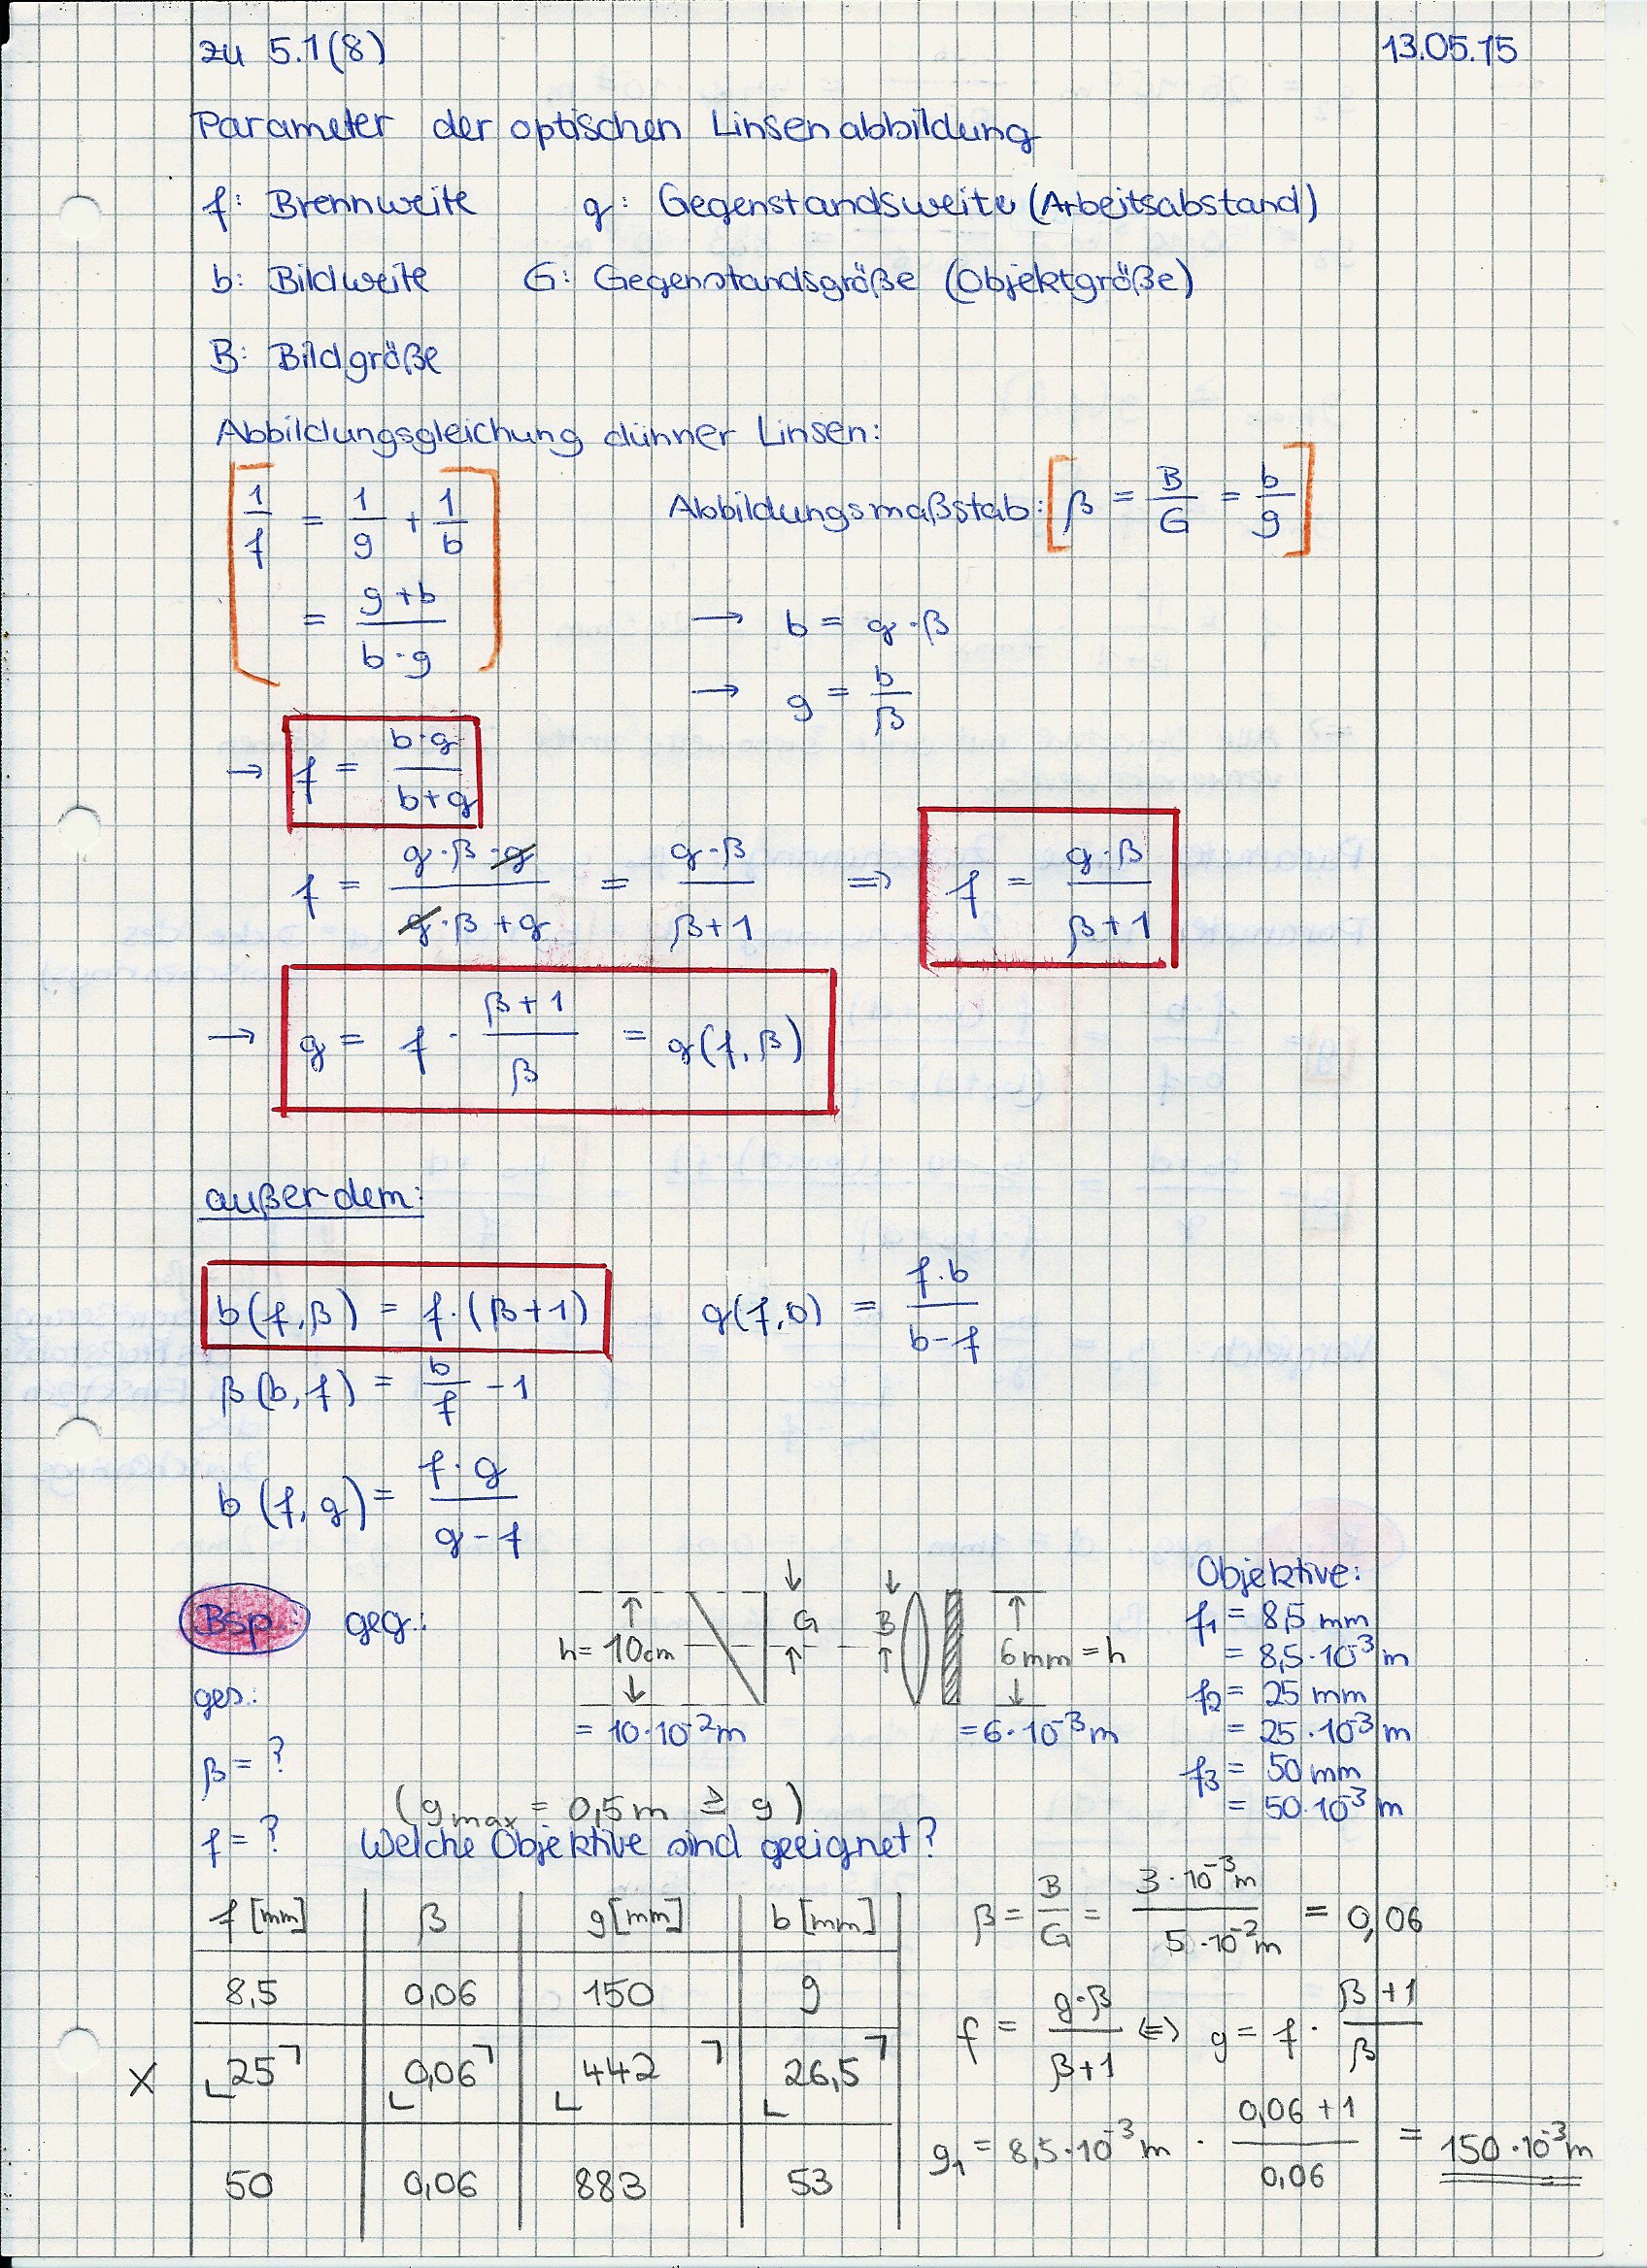 zu 5.1(8) 13.05.15
Parameter der optischen Linsenabbildung
f: Brennweite g: Gegenstandsweite (Arbeitsabstand)
b: Bildweite G: Gegenstandsgröße (Objektgröße)
B: Bildgröße
Abbildungsgleichung dünner Linsen:
1/f = 1/g + 1/b
= (g+b)/(b·g)
Abbildungsmaßstab: β = B/G = b/g
→ b = g·β
→ g = b/β
→ f = (b·g)/(b+g)
f = (g·β·g)/(g·β+g) = (g·β)/(β+1) ⇒ f = (g·β)/(β+1)
→ g = f · (β+1)/β = g(f,β)
außerdem:
b(f,β) = f·(β+1) g(f,b) = (f·b)/(b-f)
β(b,f) = b/f - 1
b(f,g) = (f·g)/(g-f)
Bsp.: geg.:
h = 10cm
= 10·10⁻²m
G
B
6mm = h
= 6·10⁻³m
Objektive:
f1 = 8,5 mm
= 8,5·10⁻³m
f2 = 25 mm
= 25·10⁻³m
f3 = 50 mm
= 50·10⁻³m
ges.:
β = ?
(gmax = 0,5m ≥ g)
f = ? Welche Objektive sind geeignet?
f [mm] β g[mm] b [mm]
8,5 0,06 150 9
X 25 0,06 442 26,5
50 0,06 883 53
β = B/G = (3·10⁻³m)/(5·10⁻²m) = 0,06
f = (g·β)/(β+1) ⇔ g = f · (β+1)/β
g1 = 8,5·10⁻³m · (0,06+1)/0,06 = 150·10⁻³m